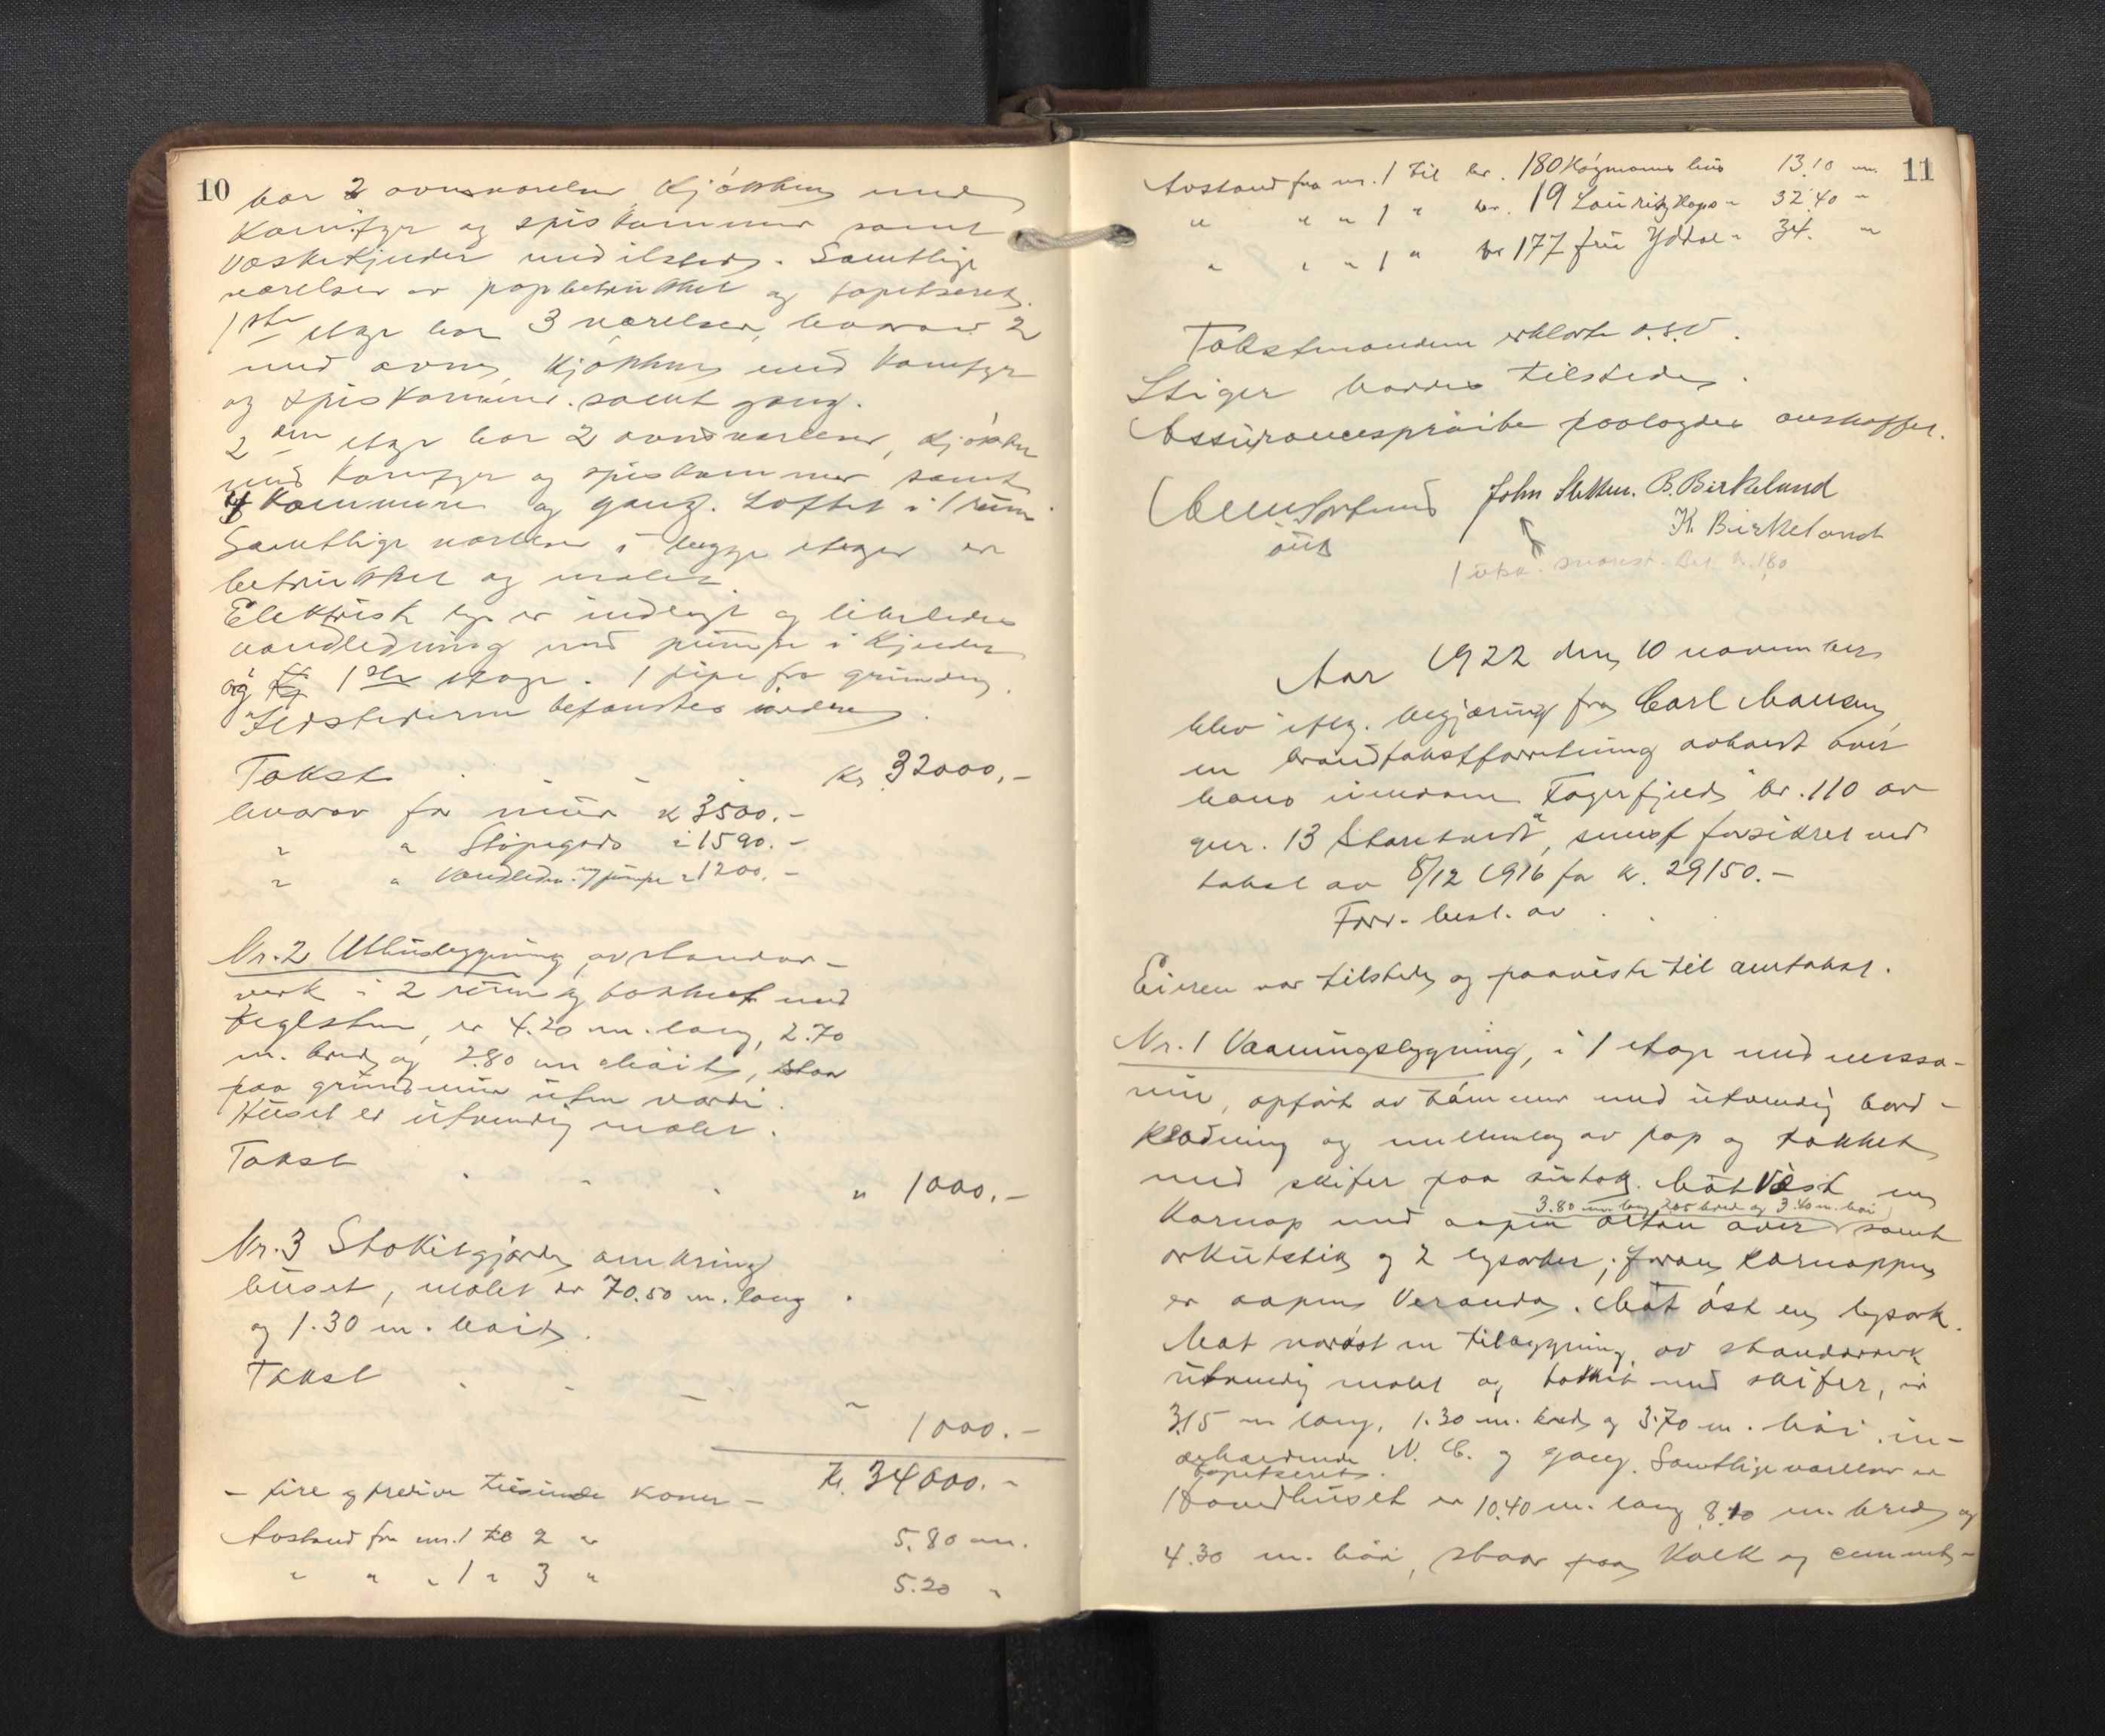 10
har 2 ovnsværelser, Kjøkken med
Komfyr og spiskammer samt
vaskekjelder med ildsted. Samtlige
værelser er papbetrukket og tapetseret.
1ste etage har 3 værelser, hvorav 2
med ovne, Kjøkken med Komfyr
og spiskammer samt gang.
2den etage har 2 ovnsværelser, Kjøkken
med Komfyr og spiskammer samt
4 Kammere og gang. Loftet i 1 rum.
Samtlige værelser i begge etager er
betrukket og malet
Elektrisk lys er indlagt og likeledes
vandledning med pumpe i Kjelder
og 1ste etage. 1 pipe fra grunden.
Ildstederne befandtes i orden.
Takst Kr. 32000,-
hvorav for mur Kr 3500.-
" " Støpegods " 1590.-
" " Vandledn. og pumpe " 1200.-
Nr. 2 Uthusbygning av stander-
verk i 2 rum og tækket med
teglsten, er 4.20 m. lang, 2.70
m. bred og 2.80 m høit, staar
paa grundmur uten værdi.
Huset er utvendig malet.
Takst " 1000.-
Nr. 3 Stakitgjærde omkring
huset, malet er 70.50 m. lang
og 1.30 m. høit.
Takst " 1000.-
Kr. 34000.-
- fire og tredive tusinde kroner -
Avstand fra nr. 1 til 2 " 5.80 m.
" " " 1 " 3 " 5.20 "
11
Avstand fra nr. 1 til br. 180 Høgmanns hus 13.10 m.
" " " 1 " br. 19 Lauritz Hops " 32.40 "
" " " 1 " br 177 fru Yddal " 34. "
Takstmændene erklærte o.s.v.
Stiger havdes tilstede.
Assurancesprøite paalagdes anskaffet.
John Sletten. B. Birkeland
K. Birkeland
Aar 1922 den 10 november
blev efter begjæring fra Carl Hansen
en brandtakstforretning avholdt over
hans eiendom "Fagerfjeld" br. 110 av
gnr. 13 Storetvedt", senest forsikret ved
takst av 8/12 1916 for kr. 29150.-
Forr. best. av . .
Eieren var tilstede og paaviste til omtakst.
Nr. 1 Vaaningsbygning, i 1 etage med messa-
nin, opført av tømmer med utvendig bord-
klædning og mellemlag av pap og tækket
med skifer paa sutak. Mot Vest en
3.80 m. lang 2.05 bred og 3.40 m. høi
Karnap med aapen altan over samt
arkutstik og 2 lysarker; foran karnappen
er aapen Veranda. Mot øst en lysark.
Mot nordøst en tilbygning av standerverk
utvendig malet og tækket med skifer, er
3.15 m lang, 1.30 m. bred og 3.70 m. høi, in-
deholdende W. C. og gang. Samtlige værelser er
tapetseret.
Hovedhuset er 10.40 m. lang 8.10 m. bred og
4.30 m. høi, staar paa Kalk og cement-